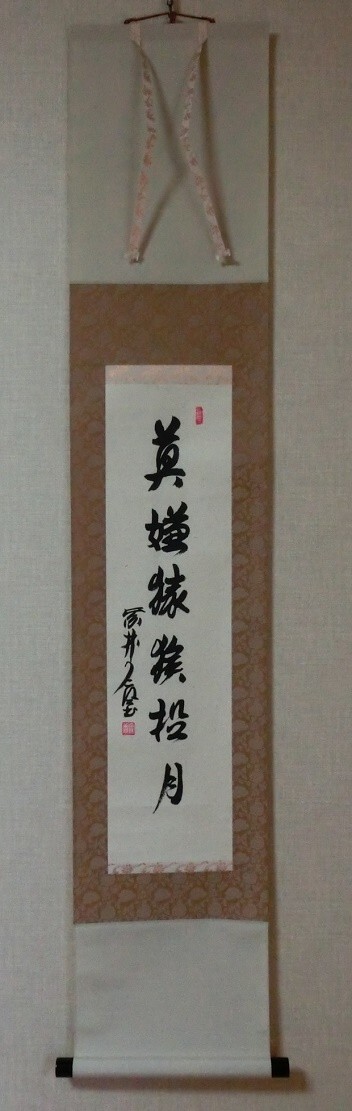 莫嫌猿猴捉月